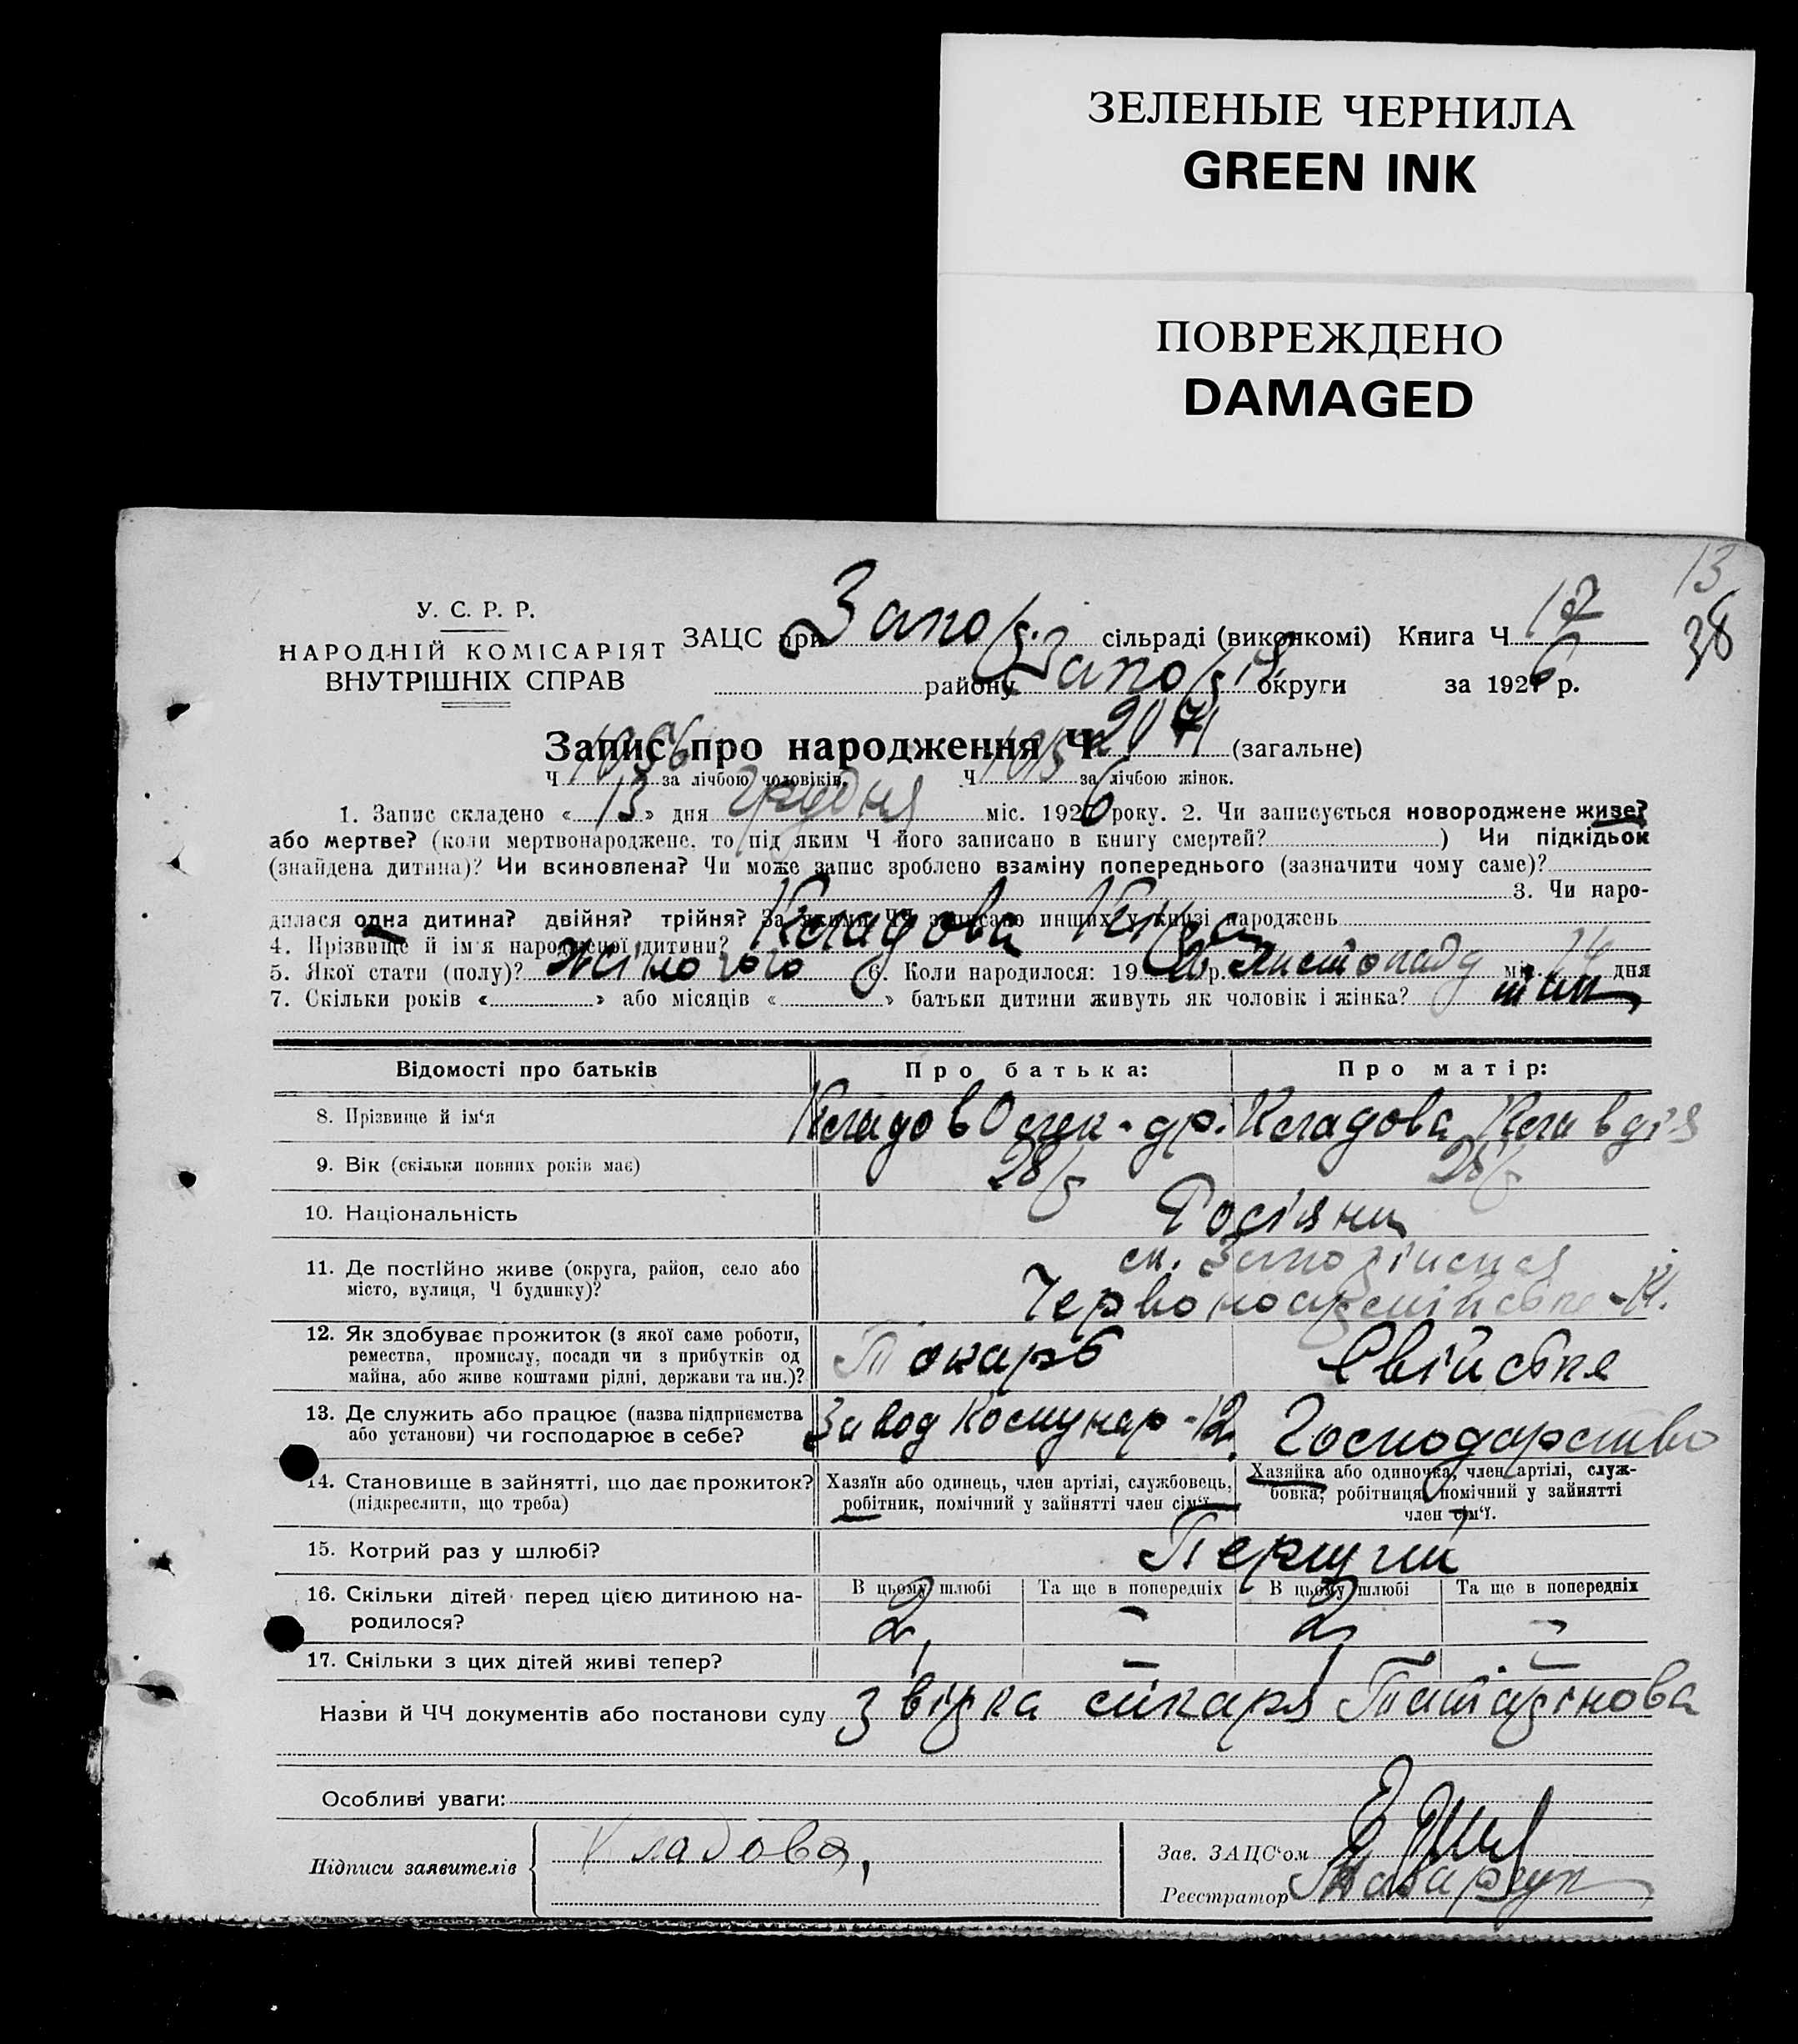 ЗЕЛЕНЫЕ ЧЕРНИЛА
GREEN INK
ПОВРЕЖДЕНО
DAMAGED
13
38
У. С. Р. Р.
НАРОДНІЙ КОМІСАРІЯТ
ВНУТРІШНІХ СПРАВ
ЗАЦС при Запоріз. сільраді (виконкомі) Книга Ч 17
району Запоріз округи за 1926 р.
Запис про народження Ч 2071 (загальне)
Ч 1056 за лічбою чоловіків, Ч 1015 за лічбою жінок.
1. Запис складено « 13 » дня грудня міс. 1926 року. 2. Чи записується новороджене живе?
або мертве? (коли мертвонароджене, то під яким Ч його записано в книгу смертей? ) Чи підкідьок
(знайдена дитина)? Чи всиновлена? Чи може запис зроблено взаміну попереднього (зазначити чому саме)?
3. Чи наро-
дилася одна дитина? двійня? трійня? За якими ЧЧ записано инших у книзі народжень
4. Прізвище й ім'я народженої дитини? Кладова
5. Якої стати (полу)? Жіночого 6. Коли народилося: 1926 р. Листопаду міс. 14 дня
7. Скільки років « » або місяців « » батьки дитини живуть як чоловік і жінка?
Відомості про батьків Про батька: Про матір:
8. Прізвище й ім'я Кладов Олек-др. Кладова Клавдія
9. Вік (скільки повних років має) 28 28
10. Національність Росіяни
11. Де постійно живе (округа, район, село або
місто, вулиця, Ч будинку)?
12. Як здобуває прожиток (з якої саме роботи,
ремества, промислу, посади чи з прибутків од
майна, або живе коштами рідні, держави та ин.)? Токарь Свійське
13. Де служить або працює (назва підприємства
або установи) чи господарює в себе? Завод Комунар Господарство
14. Становище в зайнятті, що дає прожиток?
(підкреслити, що треба)
Хазяїн або одинець, член артілі, службовець,
робітник, помічний у зайнятті член сім'ї.
Хазяйка або одиночка, член артілі, служ-
бовка, робітниця, помічний у зайнятті
член сім'ї.
15. Котрий раз у шлюбі? Перший
16. Скільки дітей перед цією дитиною на-
родилося?
В цьому шлюбі Та ще в попередніх В цьому шлюбі Та ще в попередніх
2 – 2 –
17. Скільки з цих дітей живі тепер? 1 – 1 –
Назви й ЧЧ документів або постанови суду звізка лікаря
Особливі уваги:
Підписи заявителів Кладова,
Зав. ЗАЦС'ом
Реєстратор